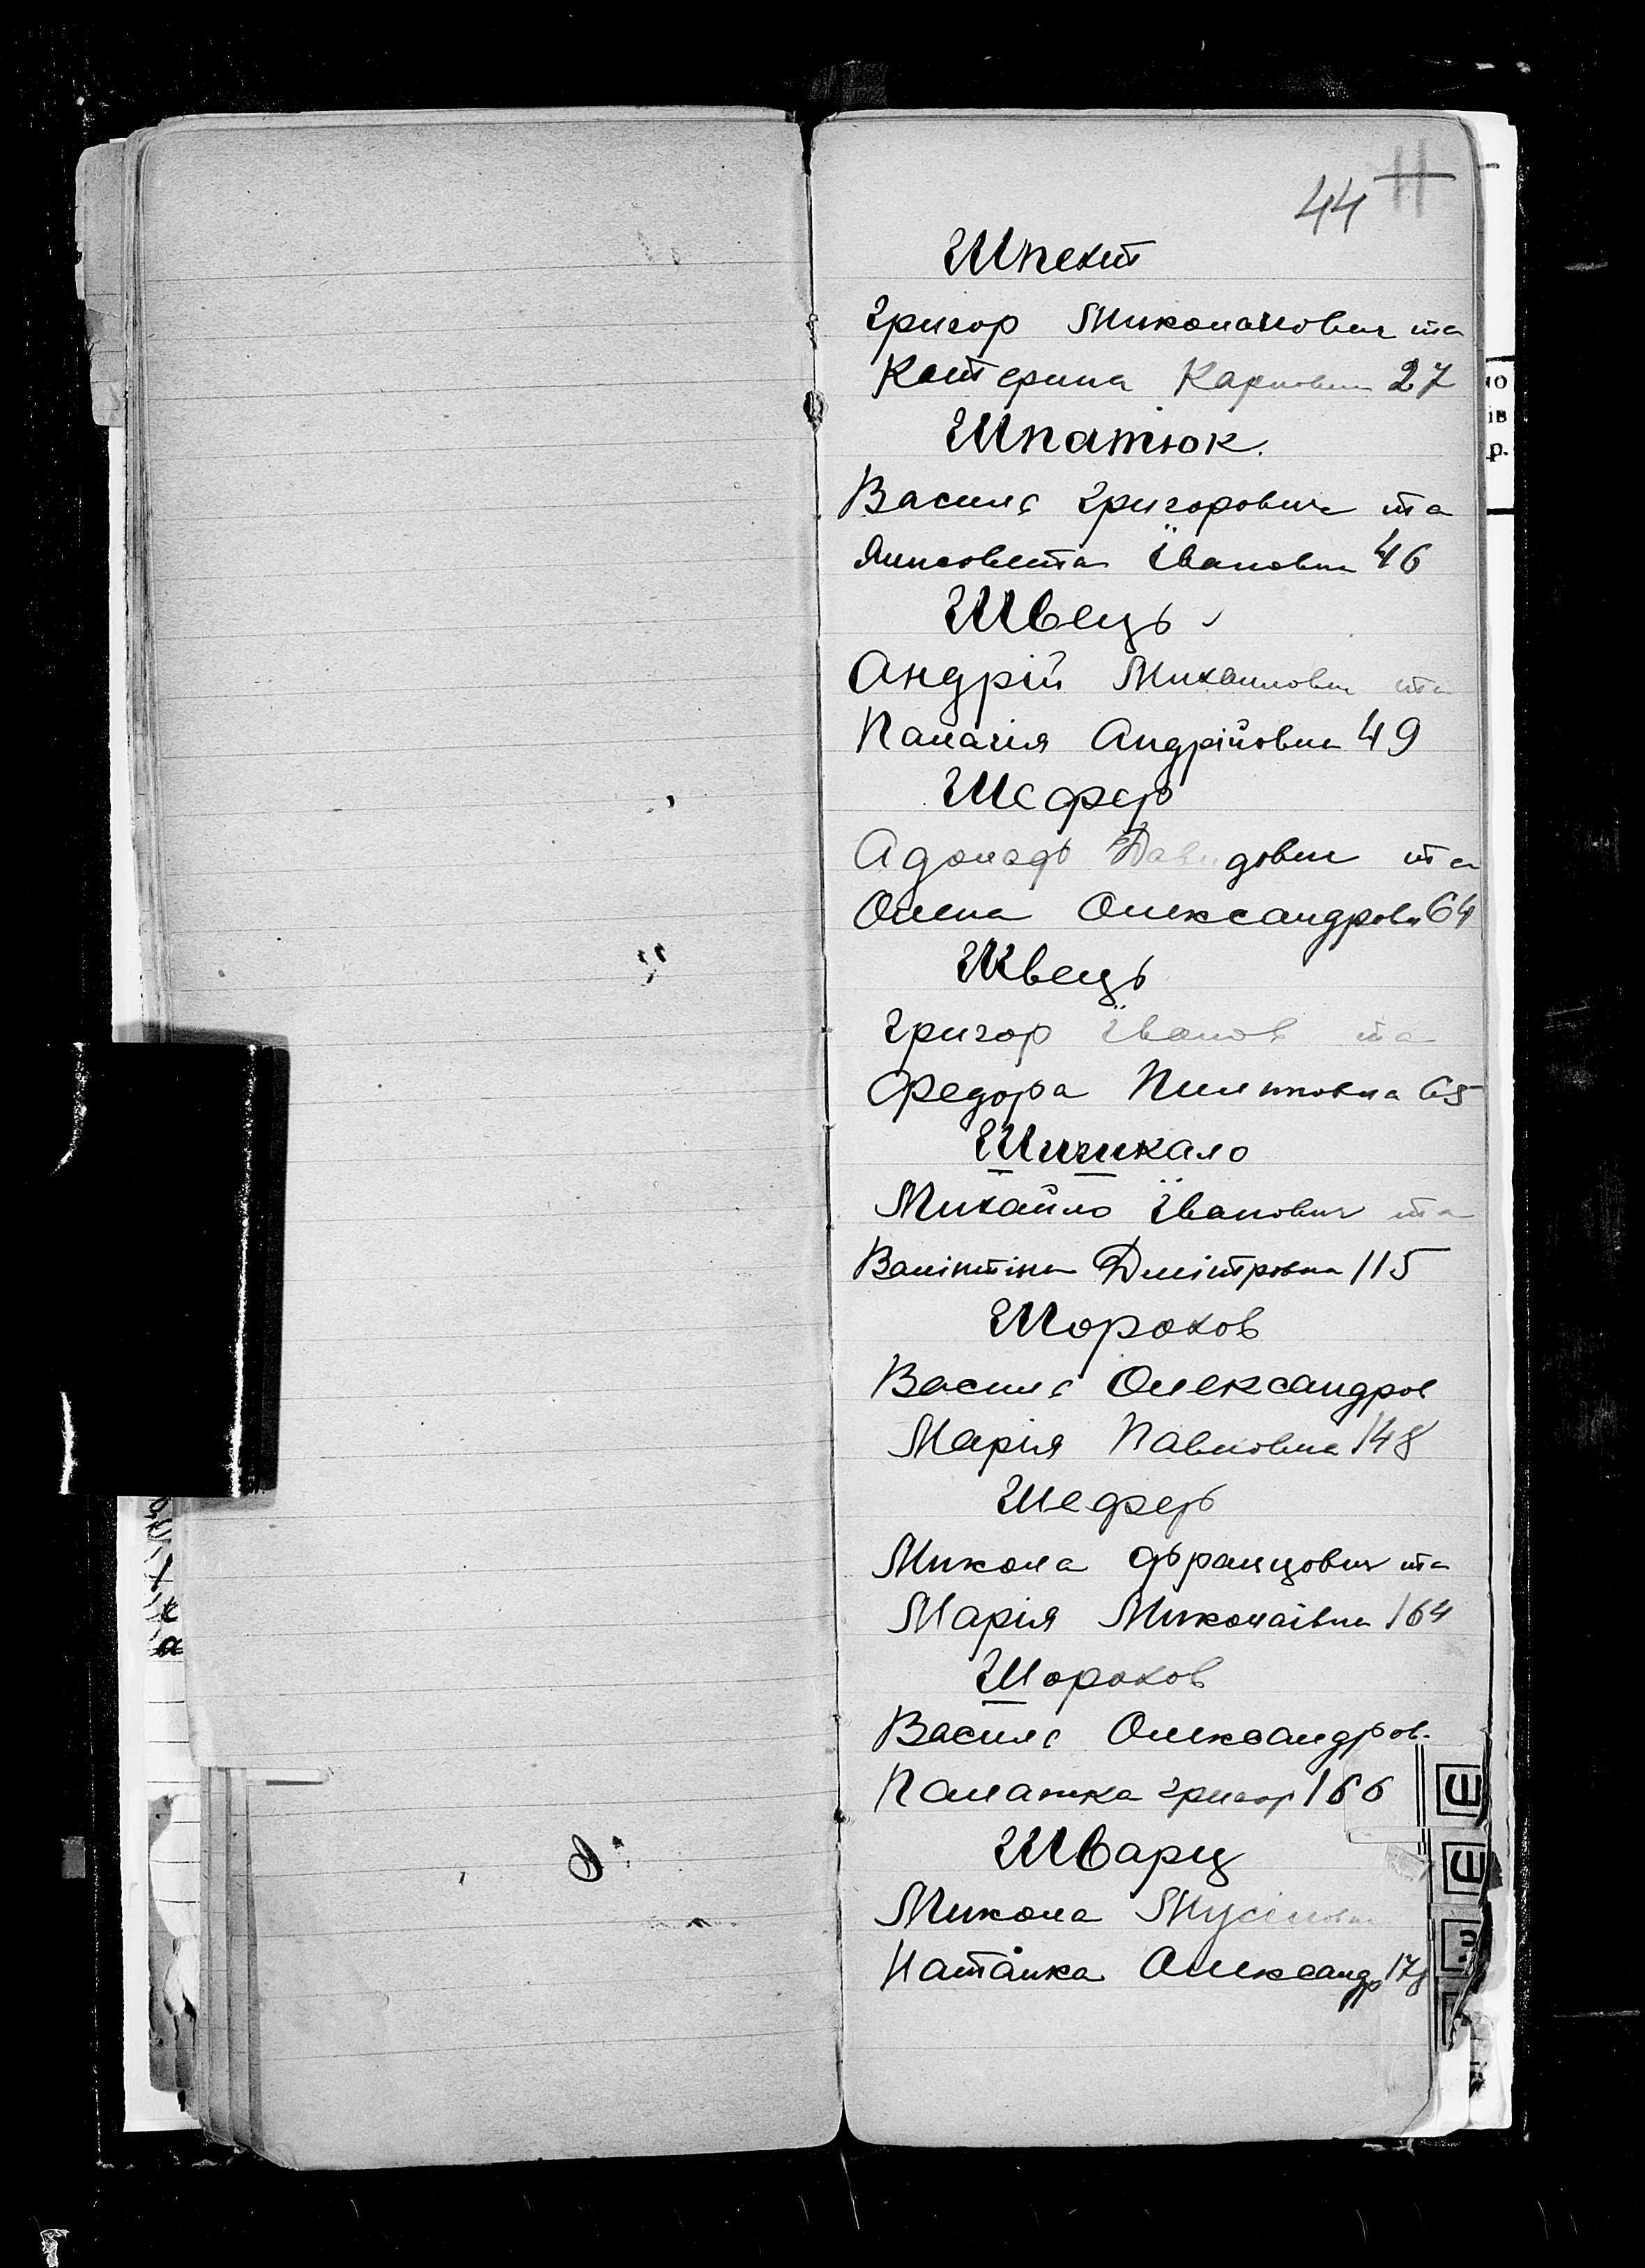 44
Шпехт
Григор Миколайович та
Катерина Карповна 27
Шпатюк.
Василь Григорович та
Ївановна 46
Швець
Андрій Михайлович та
Палагія Андрійовна 49
Шефер
Адольф Давидович та
Олена Олександровн 64
Швець
Григор Їванов та
Федора Пилиповна 65
Шишкало
Михайло Їванович та
Валінтіна Дмітровна 115
Шорохов
Василь Олександров
Марія Павловна 148
Шефер
Микола Францович та
Марія Миколаівна 164
Шорохов
Василь Олександров.
Палажка Григор 166
Шварц
Микола
Наталка Олександр 178
но
ів
р.